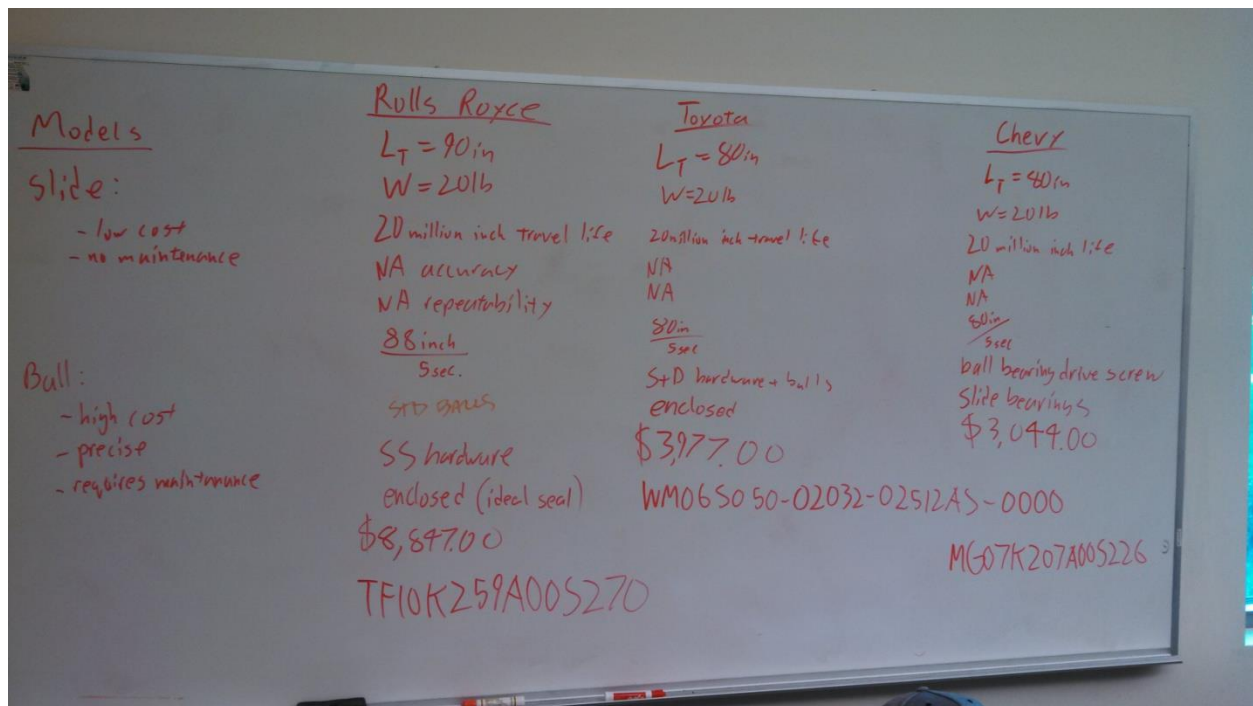 Models
Slide:
- low cost
- no maintenance
Ball:
- high cost
- precise
- requires maintenance
Rolls Royce
LT = 90in
W = 20lb
20 million inch travel life
NA accuracy
NA repeatability
88 inch
5sec.
STD BALLS
SS hardware
enclosed (ideal seal)
$8,847.00
TF10K259A00S270
Toyota
LT = 80in
W=20lb
20million inch travel life
NA
NA
80in
5sec
STD hardware + balls
enclosed
$3,977.00
WM06S050-02032-02512AS-0000
Chevy
LT = 80in
W=20lb
20 million inch life
NA
NA
80in/
5sec
ball bearing drive screw
slide bearings
$3,044.00
MG07K207A00S226